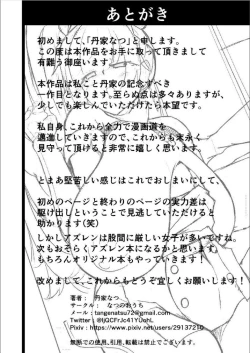 あとがき
初めまして、「丹家なつ」と申します。
この度は本作品をお手に取って頂きまして
有難う御座います。
本作品は私こと丹家の記念すべき
一作目となります。至らぬ点は多々ありますが、
少しでも楽しんでいただけたら本望です。
私自身、これから全力で漫画道を
邁進していきますので、これからも末永く
見守って頂けると非常に嬉しく思います。
とまあ堅苦しい感じはこれでおしまいにして、
初めのページと終わりのページの実力差は
駆け出しということで見逃していただけると
助かります(笑)
しかしアズレンは股間に厳しい女子が多いですね。
次もおそらくアズレン本になるかと思います。
もちろんオリジナル本もやっていきます!
改めまして、これからもどうぞ宜しくお願いします!
著者: 丹家なつ
サークル: なつのおうち
メール: tangenatsu72@gmail.com
Twitter: @IQCFrJc41YUohL
Pixiv: https://www.pixiv.net/users/29137210
無断での使用、引用、転載は禁止でございます。